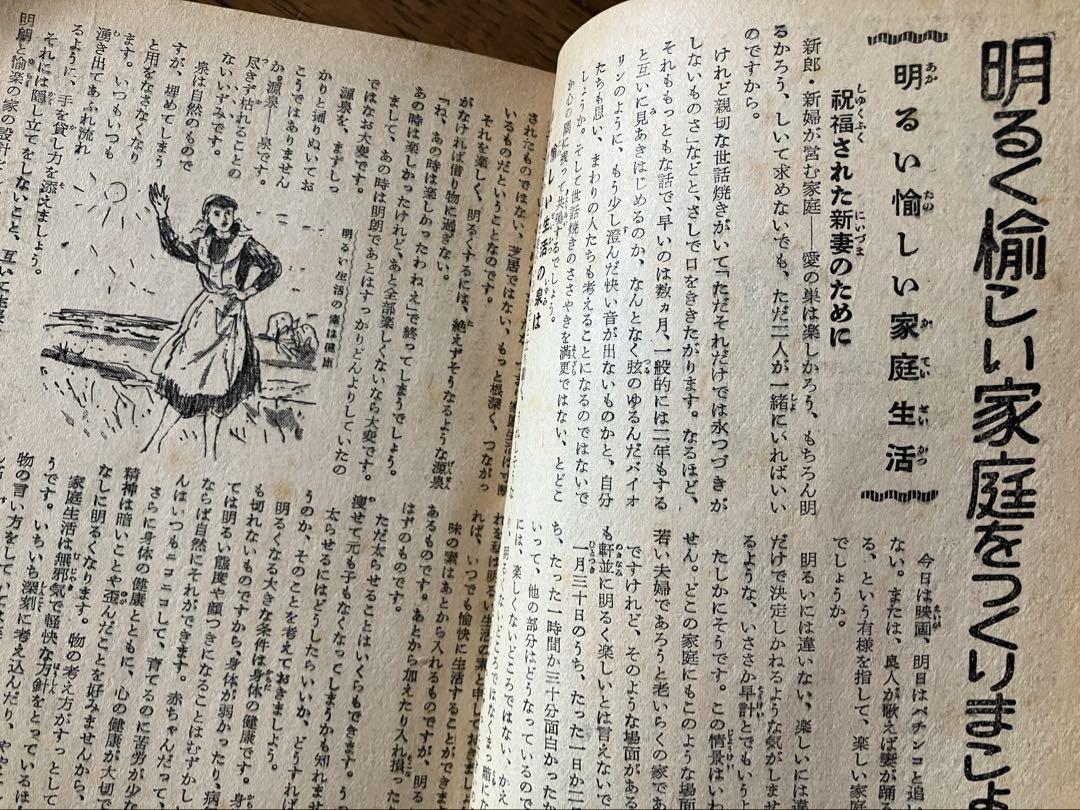 明るく愉しい家庭をつくりましょ
明るい愉しい家庭生活
祝福された新妻のために
新郎・新婦が営む家庭――愛の巣は楽しかろう、もちろん明
るかろう、しいて求めないでも、ただ二人が一緒にいればいい
のですから。
けれど親切な世話焼きがいて「ただそれだけでは永つづきが
しないものさ」などと、さしで口をききたがります。なるほど、
それももっともな話で、早いのは数ヵ月、一般的には二年もする
と互いに見あきはじめるのか、なんとなく弦のゆるんだバイオ
リンのように、もう少し澄んだ快い音が出ないものかと、自分
たちも思い、まわりの人たちも考えることになるのではないで
しょうか。そして世話焼きのささやきを満更ではない、とどこ
か心の隅に残って共鳴するでしょう。
生活の泉は
今日は映画、明日はパチンコと追
ない。または、良人が歌えば妻が踊る
る、という有様を指して、楽しい家庭
でしょうか。
明るいには違いない、楽しいには違
だけで決定しかねるような気がしませ
るような、いささか早計とでもいうよ
たしかにそうです。この情景はいわ
せん。どこの家庭にもこのような場面
若い夫婦であろうと老いらくの家であ
ですけれど、そのような場面がある
も軒並に明るく楽しいとは言えないで
一月三十日のうち、たった一日か二
ち、たった一時間か三十分面白かったか
いって、他の部分はどうなっているので
には、楽しくないどころではない、かえ
されたものではない、芝居ではない、もっと根深く、つながっ
いるものだということなのです。
それを楽しく、明るくするには、絶えずそうなるような源泉
がなければ借り物に過ぎない。
「ね、あの時は楽しかったわねえ」で終ってしまうでしょう。
あの時は楽しかったけれど、あと全部楽しくないなら大変です。
まして、あの時は明朗であとはすっかりどんよりしていたの
ではなお大変です。
源泉を、まずしっ
かりと通りぬいてお
こうではありません
か。源泉――泉です。
尽きず枯れることの
ないいずみです。
泉は自然のもので
すが、埋めてしまう
と用をなさなくなり
ます。いつもいつも
湧き出てあふれ流れ
るように、手を貸し力を添えましょう。
それには隠し立てをしないこと、互いに生長
明朗と愉楽の家の設計
明るい生活の素は健康
れを私は明るい生活の素と申しておきま
れば、いつでも愉快に生活することができ
味の素はあとから入れるものですが、明る
あるものです。あとから加えたり入れ損った
はずのものです。
ただ太らせることはいくらもできます。う
痩せて元も子もなくなってしまうかも知れませ
太らせるにはどうしたらいいか、どうすれば
うのか、そのことを考えておきましょう。
明るくなる大きな条件は身体の健康です。身
も切れないものですから、身体が弱かったり、病
ては明るい態度や顔つきになることはむずかし
ならば自然にそれができます。赤ちゃんだって
んはいつもニコニコして、育てるのに苦労が少な
さらに身体の健康とともに、心の健康が大切で
精神は暗いことや歪んだことを好みませんから、
なしに明るくなります。物の考え方がすっとして
家庭生活は無邪気で軽快な方針をとっているほ
うです。いちいち深刻に考え込んだり、やや
物の言い方をしていては